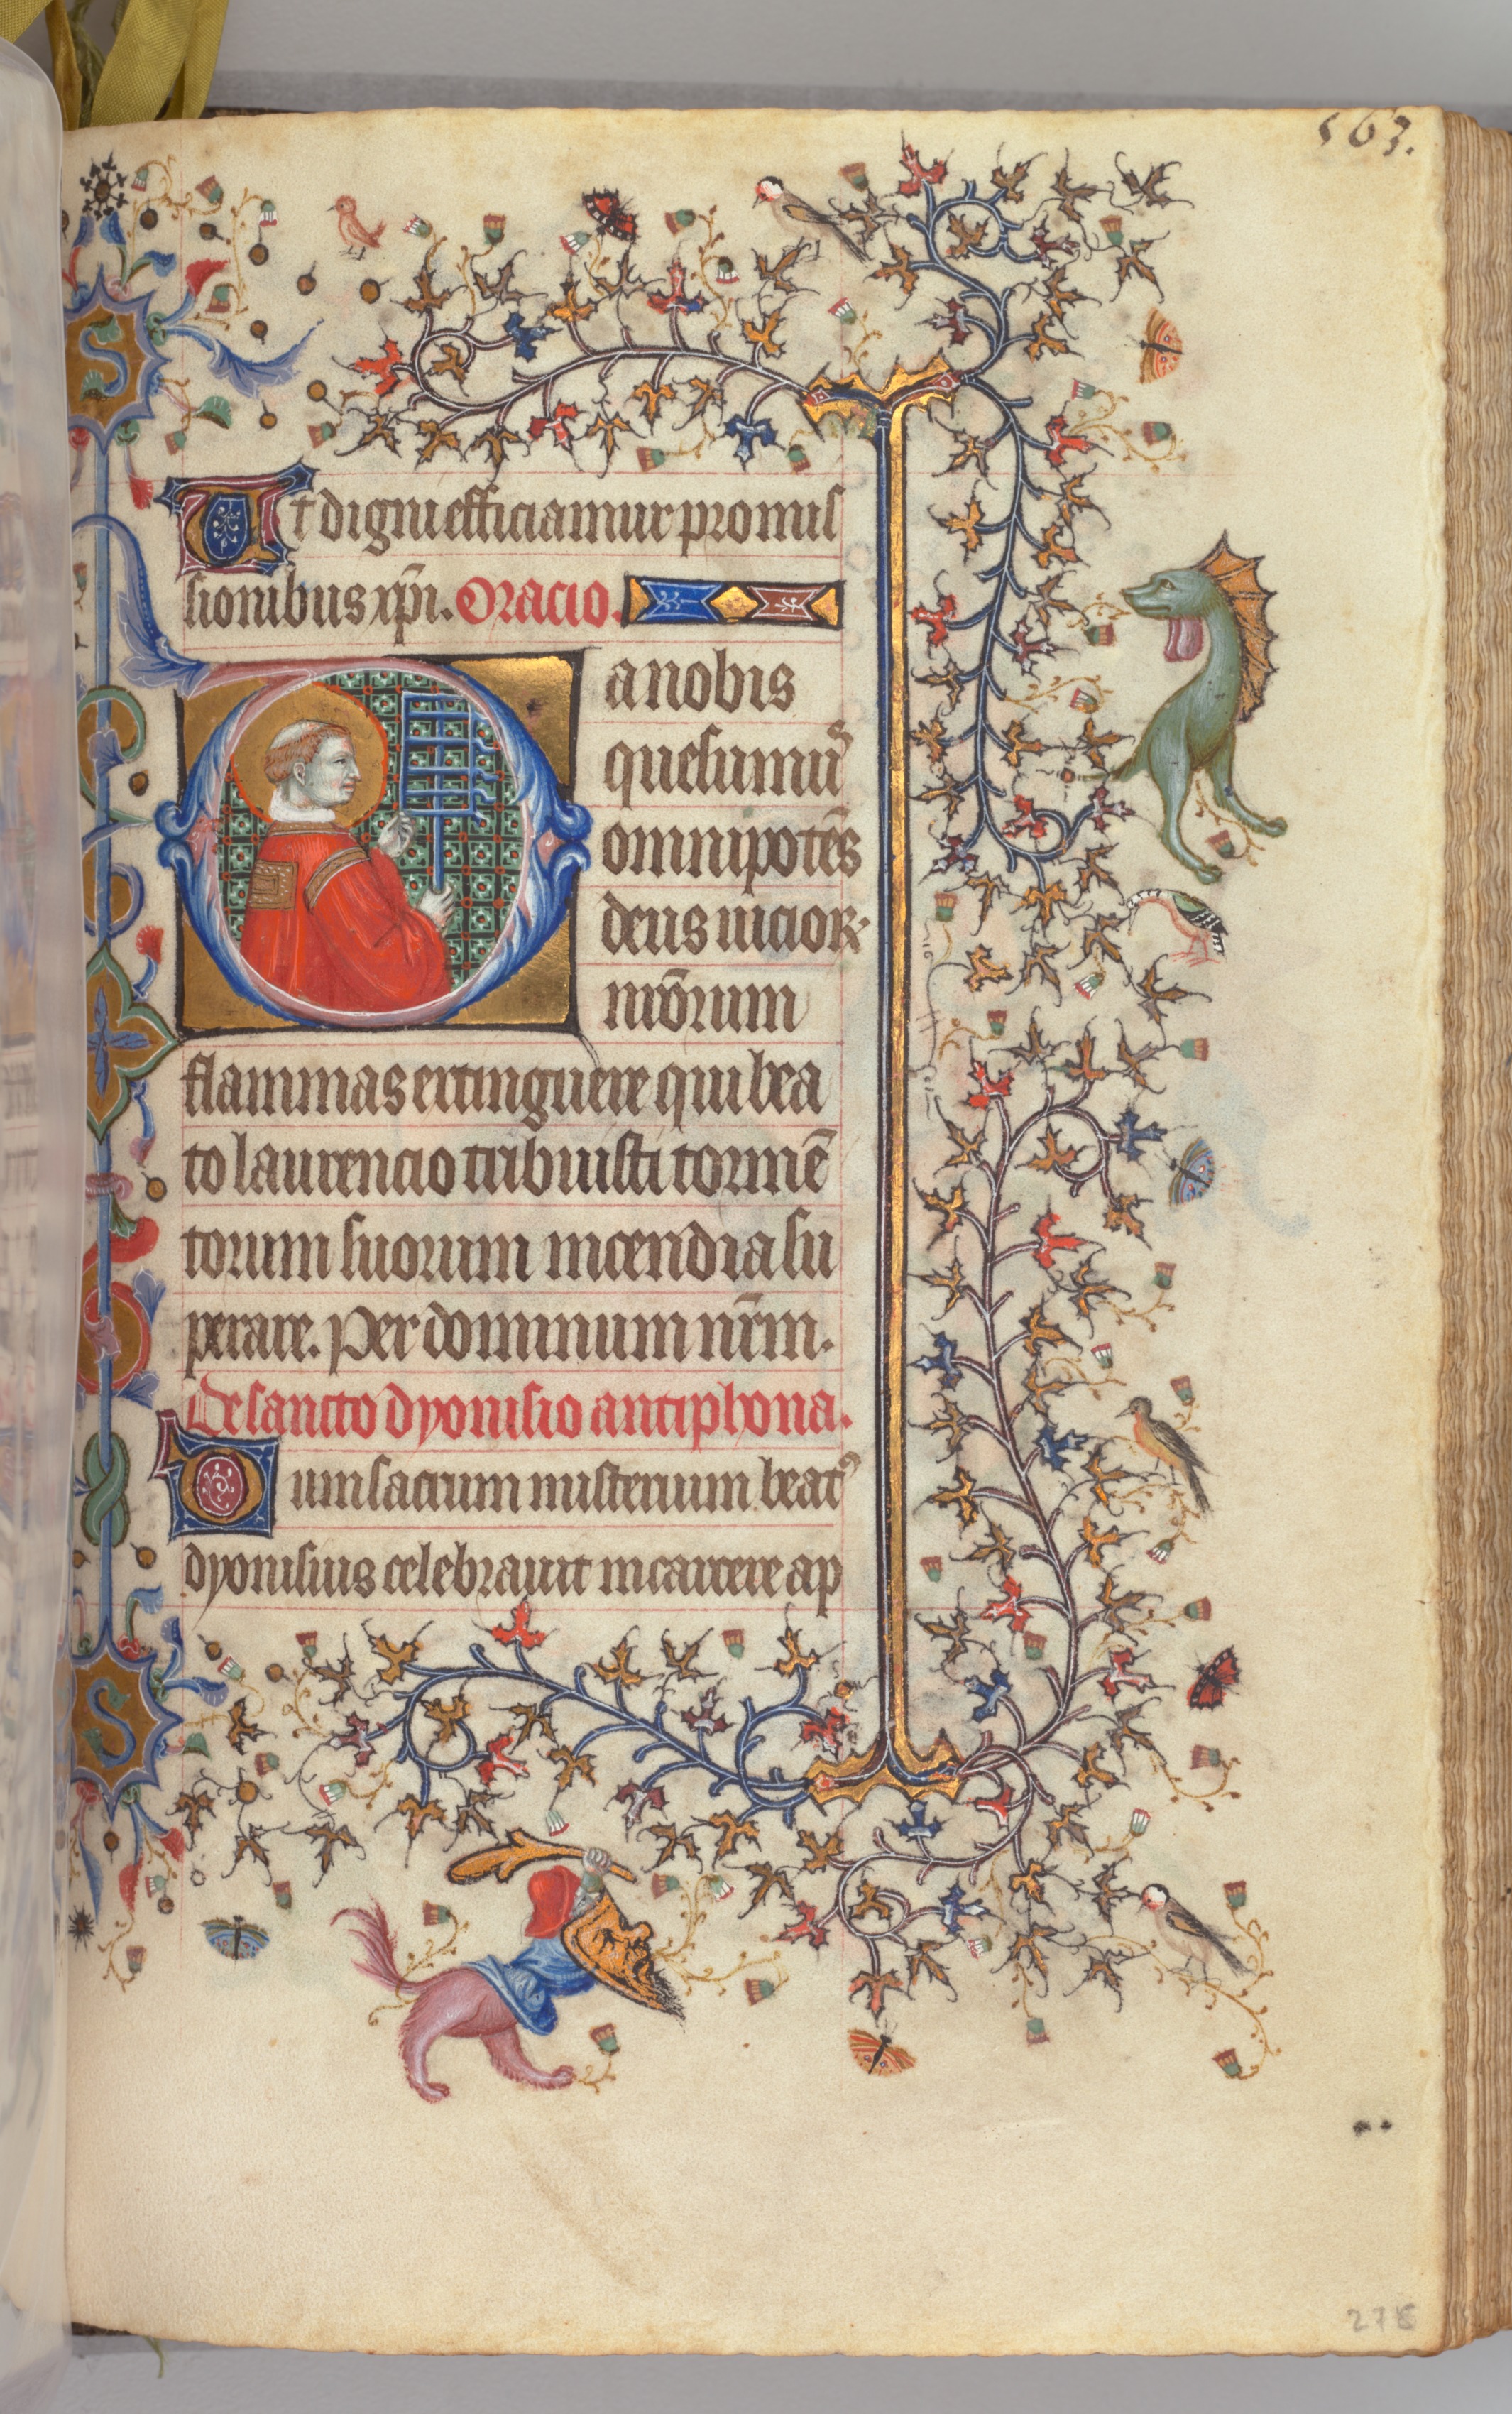 563.
S
Ut digni efficiamur promis
sionibus xp̄i. Oracio.
Da nobis
quesumꝰ
omnipotēs
deus uicior
nr̄orum
flammas extinguere qui bea
to laurencio tribuisti tormē
torum suorum incendia su
perare. Per dominum nr̄m.
De sancto dyonisio antiphona.
Dum sacrum misterium beatꝰ
dyonisius celebrauit in carcere ap
S